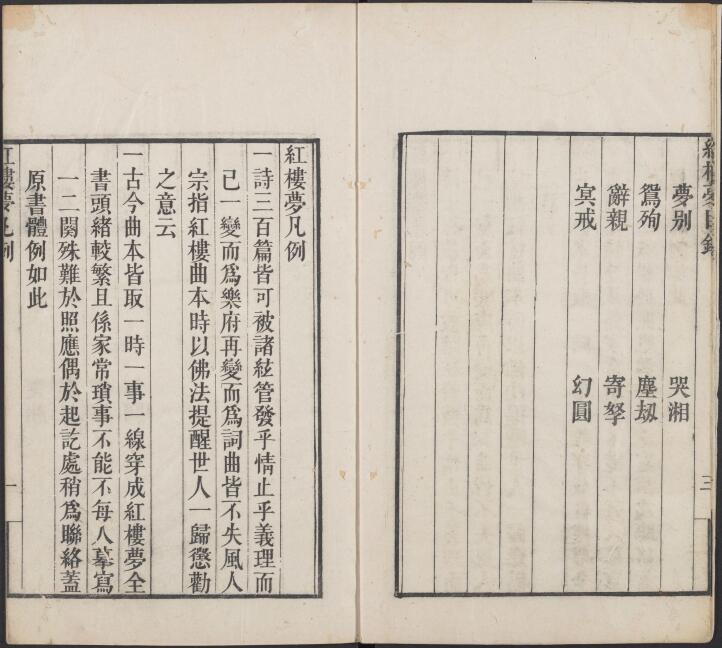 紅樓夢目錄
夢別 哭湘
鴛殉 塵刼
辭親 寄孥
冥戒 幻圓
三
紅樓夢凡例
一詩三百篇皆可被諸絃管發乎情止乎義理而
已一變而爲樂府再變而爲詞曲皆不失風人
宗指紅樓曲本時以佛法提醒世人一歸懲勸
之意云
一古今曲本皆取一時一事一線穿成紅樓夢全
書頭緒較繁且係家常瑣事不能不每人摹寫
一二闋殊難於照應偶於起訖處稍爲聯絡蓋
原書體例如此
紅樓夢凡例
一